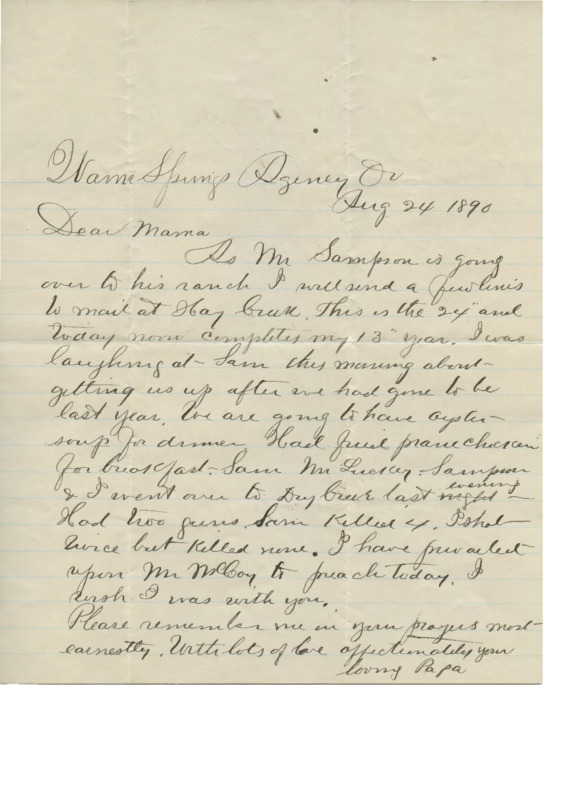 Warm Springs Agency Or
Aug 24 1890
Dear Mama
As Mr Sampson is going
over to his ranch I will send a few lines
to mail at Hay Creek. This is the 24" and
today noon completes my 13" year. I was
laughing at Sam this morning about
getting us up after we had gone to be
last year. We are going to have oyster
soup for dinner Had fried prairie chicken
for breakfast. Sam Mr Luckey Sampson
& I went over to Dry Creek last night evening
Had two guns Sam killed 4. I shot
twice but killed none. I have prevailed
upon Mr McCoy to preach today. I
wish I was with you.
Please remember me in your prayers most
earnestly. With lots of love affectionately your
loving Papa